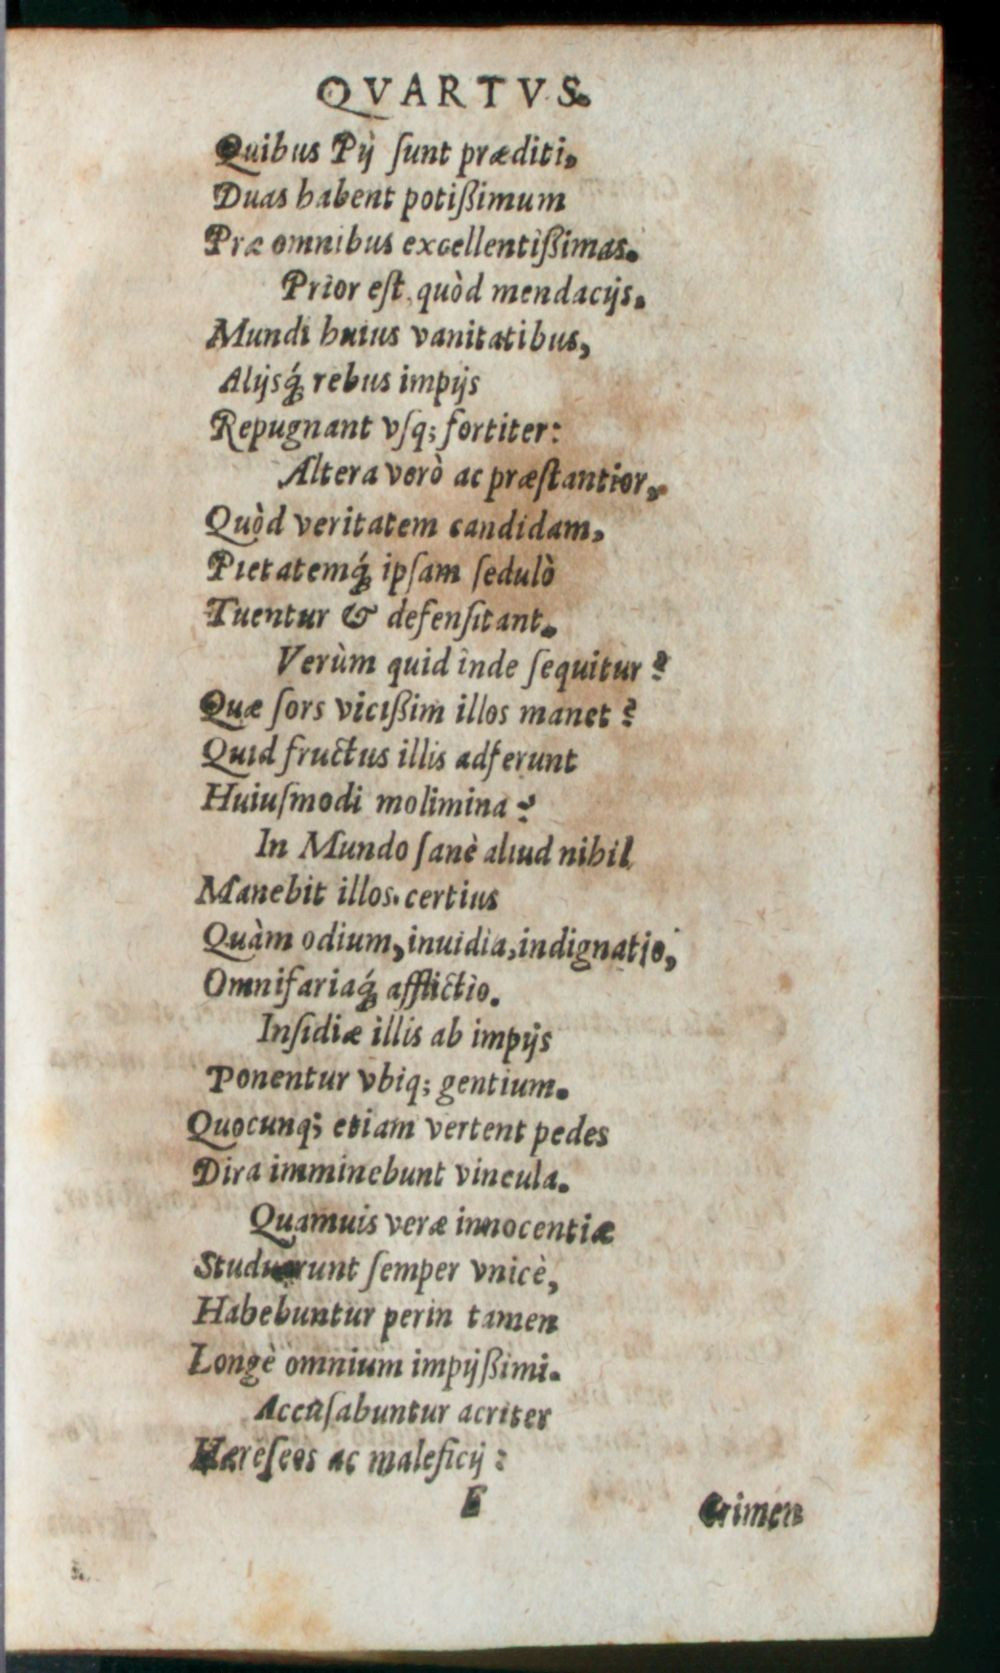 QVARTVS.
Quibus Pij ſunt præditi,
Duas habent potißimum
Præ omnibus excellentißimas.
Prior eſt, quòd mendacijs,
Mundi huius vanitatibus,
Alijsq́; rebus impijs
Repugnant vſq; fortiter:
Altera verò ac præſtantior,
Quòd veritatem candidam,
Pietatemq́; ipſam ſedulò
Tuentur & defenſitant.
Verùm quid inde ſequitur?
Quæ ſors vicißim illos manet?
Quid fructus illis adferunt
Huiuſmodi molimina?
In Mundo ſanè aliud nihil
Manebit illos certius
Quàm odium, inuidia, indignatio,
Omnifariaq́; afflictio.
Inſidiæ illis ab impijs
Ponentur vbiq; gentium.
Quocunq; etiam vertent pedes
Dira imminebunt vincula.
Quamuis veræ innocentiæ
Studuerunt ſemper vnicè,
Habebuntur perin tamen
Longè omnium impijßimi.
Accuſabuntur acriter
Hæreſeos ac maleficij:
E
Crimen